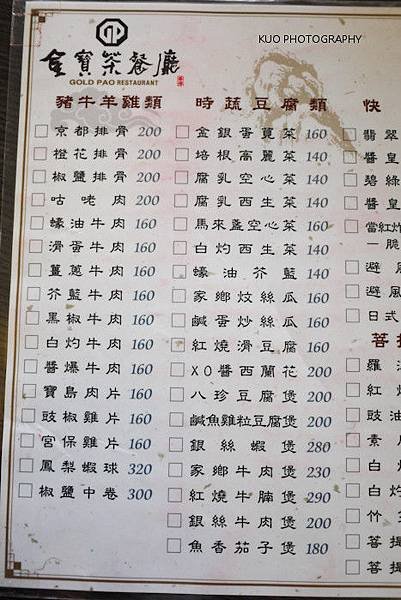 KUO PHOTOGRAPHY
金寶茶餐廳
GOLD PAO RESTAURANT
豬牛羊雞類
京都排骨 200
橙花排骨 200
椒鹽排骨 200
咕咾肉 200
蠔油牛肉 160
滑蛋牛肉 160
薑蔥牛肉 160
芥藍牛肉 160
黑椒牛肉 160
白灼牛肉 160
醬爆牛肉 160
寶島肉片 160
豉椒雞片 160
宮保雞片 160
鳳梨蝦球 320
椒鹽中卷 300
時蔬豆腐類
金銀蛋莧菜 160
培根高麗菜 140
腐乳空心菜 140
腐乳西生菜 140
馬來盞空心菜 160
白灼西生菜 140
蠔油芥藍 140
家鄉炆絲瓜 160
鹹蛋炒絲瓜 160
紅燒滑豆腐 160
XO醬西蘭花 200
八珍豆腐煲 200
鹹魚雞粒豆腐煲 200
銀絲蝦煲 280
家鄉牛肉煲 230
紅燒牛腩煲 290
銀絲牛肉煲 200
魚香茄子煲 180
快
翡翠
醬皇
碧綠
醬皇
當紅炸
一脆
避風
避風
日式
菩提
羅漢
紅燒
豉油
素
白灼
白灼
竹
菩提
菩提